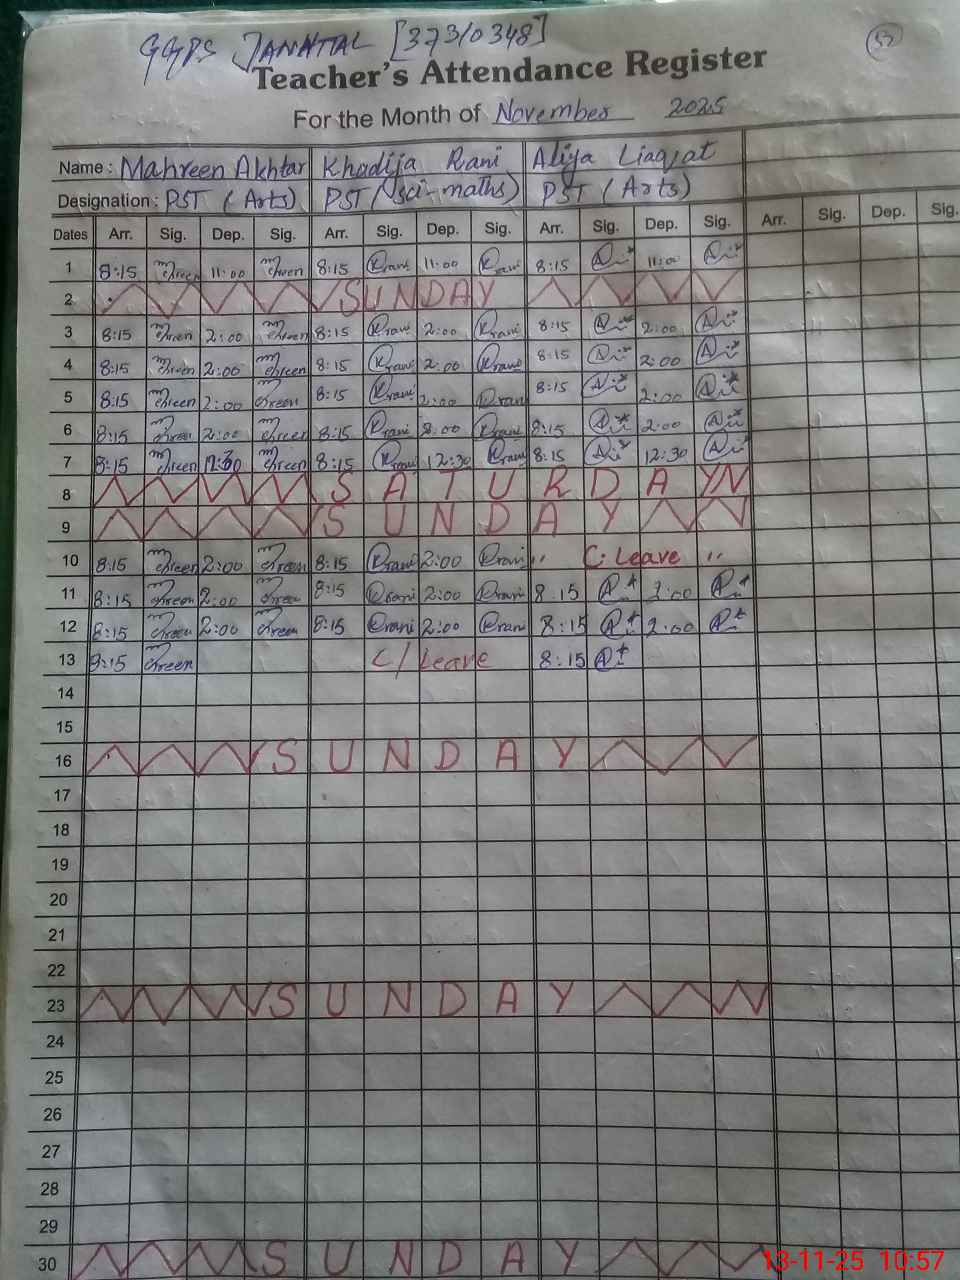 GGPS JANHTAL [37310348]
52
Teacher's Attendance Register
For the Month of November 2025
Name : Mahreen Akhtar Khadija Rani Aliya Liaqat
Designation : PST (Arts) PST (sci-maths) PST (Arts)
Dates Arr. Sig. Dep. Sig. Arr. Sig. Dep. Sig. Arr. Sig. Dep. Sig. Arr. Sig. Dep. Sig.
1 8:15 mehreen 11:00 mehreen 8:15 Krani 11:00 Krani 8:15 11:00
2 SUNDAY
3 8:15 mehreen 2:00 mehreen 8:15 Krani 2:00 Krani 8:15 2:00
4 8:15 mehreen 2:00 mehreen 8:15 Krani 2:00 Krani 8:15 2:00
5 8:15 mehreen 2:00 mehreen 8:15 Krani 2:00 Krani 8:15 2:00
6 8:15 mehreen 2:00 mehreen 8:15 Krani 2:00 Krani 8:15 2:00
7 8:15 mehreen 12:30 mehreen 8:15 Krani 12:30 Krani 8:15 12:30
8 SATURDAY
9 SUNDAY
10 8:15 mehreen 2:00 mehreen 8:15 Krani 2:00 Krani ,, C. Leave ,,
11 8:15 mehreen 2:00 mehreen 8:15 Krani 2:00 Krani 8:15 2:00
12 8:15 mehreen 2:00 mehreen 8:15 Krani 2:00 Krani 8:15 2:00
13 8:15 mehreen C/Leave 8:15
14
15
16 SUNDAY
17
18
19
20
21
22
23 SUNDAY
24
25
26
27
28
29
30 SUNDAY
13-11-25 10:57